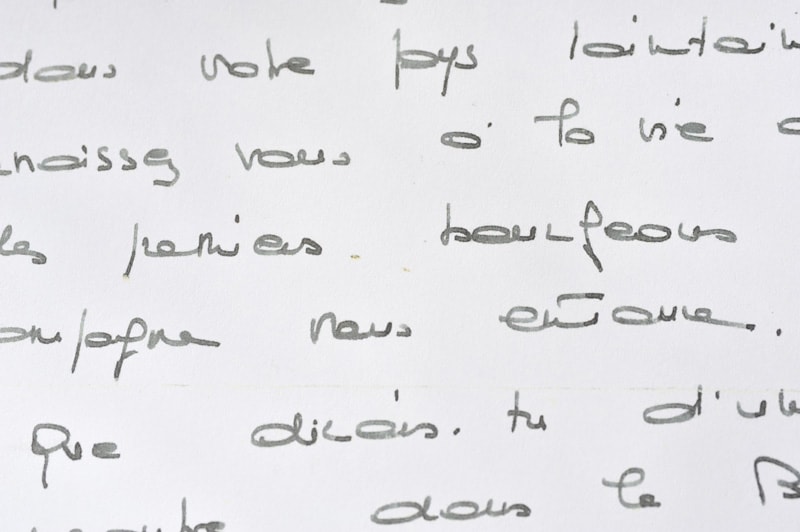 dans votre pays lointain
naissez vous à la vie
les premiers bourgeons
ompagne nous entoure.
Que dirais-tu d'un
dans le B